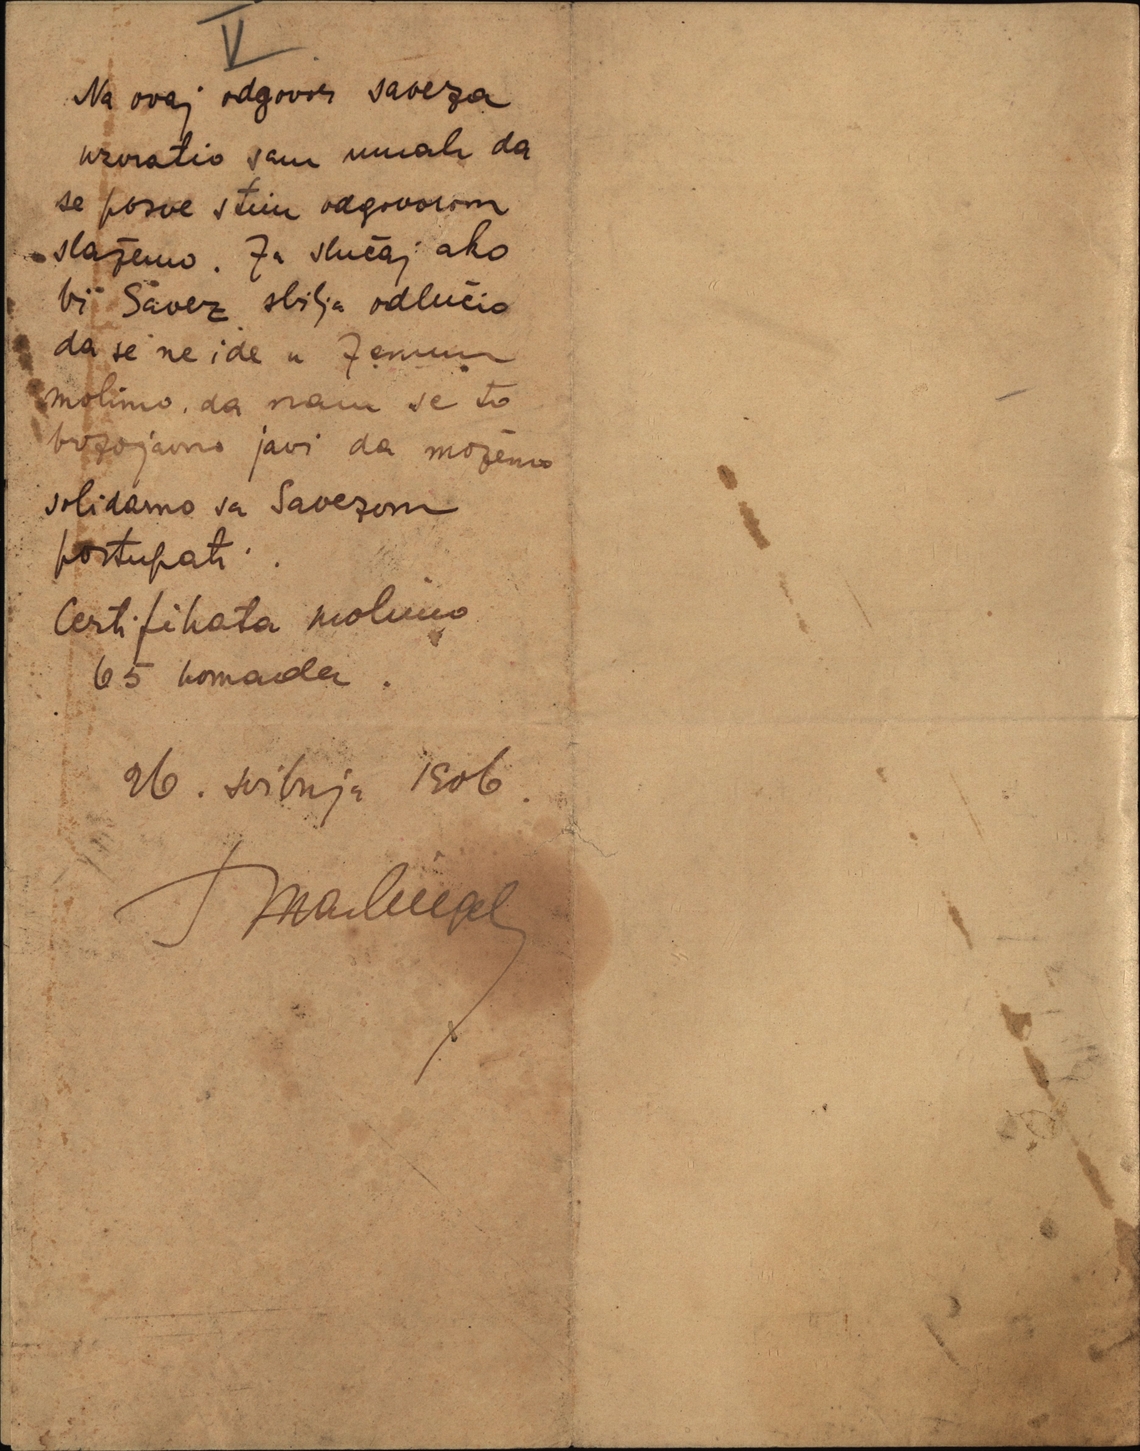 V
Na ovaj odgovor saveza
uzvratio sam umah da
se posve stim odgovorom
slažemo. Za slučaj ako
bi Savez sbilja odlučio
da se ne ide u Zemun
molimo da nam se to
brzojavno javi da možemo
solidarno sa Savezom
postupati.
Certifikata molimo
65 komada.
26. svibnja 1906.